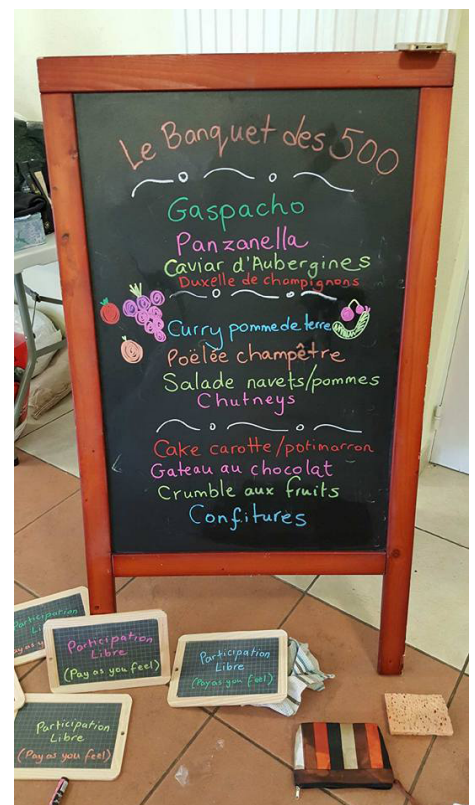 Le Banquet des 500
Gaspacho
Panzanella
Caviar d'Aubergines
Duxelle de champignons
Curry pomme de terre
Poëlée champêtre
Salade navets/pommes
Chutneys
Cake carotte/potimarron
Gateau au chocolat
Crumble aux fruits
Confitures
Participation
Li
as you feel)
Participation
Libre
(Pay as you feel)
Participation
Libre
(Pay as you feel)
Participation
Libre
(Pay as you feel)